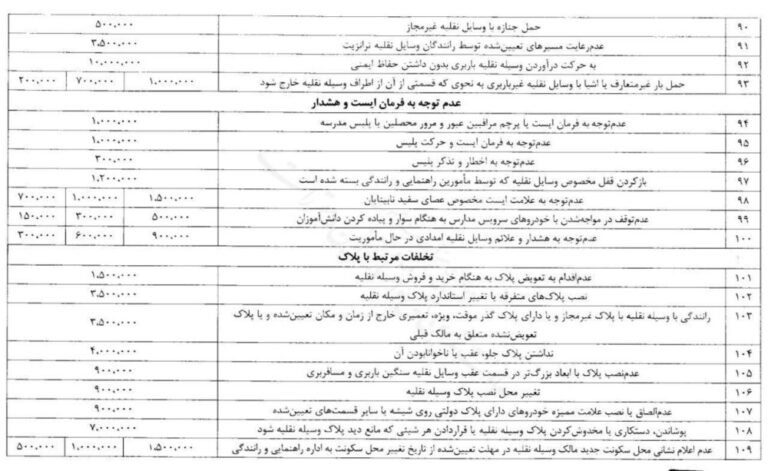 ۹۰ حمل جنازه با وسایل نقلیه غیرمجاز ۵۰۰,۰۰۰
۹۱ عدم‌رعایت مسیرهای تعیین‌شده توسط رانندگان وسایل نقلیه ترانزیت ۳,۵۰۰,۰۰۰
۹۲ به حرکت درآوردن وسیله نقلیه باربری بدون داشتن حفاظ ایمنی ۱۰,۰۰۰,۰۰۰
۹۳ حمل بار غیرمتعارف یا اشیا با وسایل نقلیه غیرباربری به نحوی که قسمتی از آن از اطراف وسیله نقلیه خارج شود ۱,۰۰۰,۰۰۰ ۷۰۰,۰۰۰ ۲۰۰,۰۰۰
عدم توجه به فرمان ایست و هشدار
۹۴ عدم‌توجه به فرمان ایست یا پرچم مراقبین عبور و مرور محصلین یا پلیس مدرسه ۱,۰۰۰,۰۰۰
۹۵ عدم‌توجه به فرمان ایست و حرکت پلیس ۱,۰۰۰,۰۰۰
۹۶ عدم‌توجه به اخطار و تذکر پلیس ۳۰۰,۰۰۰
۹۷ بازکردن قفل مخصوص وسایل نقلیه که توسط مأمورین راهنمایی و رانندگی بسته شده است ۱,۲۰۰,۰۰۰
۹۸ عدم‌توجه به علامت ایست مخصوص عصای سفید نابینایان ۱,۵۰۰,۰۰۰ ۱,۰۰۰,۰۰۰ ۷۰۰,۰۰۰
۹۹ عدم‌توقف در مواجه‌شدن با خودروهای سرویس مدارس به هنگام سوار و پیاده کردن دانش‌آموزان ۵۰۰,۰۰۰ ۳۰۰,۰۰۰ ۱۵۰,۰۰۰
۱۰۰ عدم‌توجه به هشدار و علائم وسایل نقلیه امدادی در حال مأموریت ۹۰۰,۰۰۰ ۶۰۰,۰۰۰ ۳۰۰,۰۰۰
تخلفات مرتبط با پلاک
۱۰۱ عدم‌اقدام به تعویض پلاک به هنگام خرید و فروش وسیله نقلیه ۱,۵۰۰,۰۰۰
۱۰۲ نصب پلاک‌های متفرقه یا تغییر استاندارد پلاک وسیله نقلیه ۳,۵۰۰,۰۰۰
۱۰۳ رانندگی با وسیله نقلیه با پلاک غیرمجاز و یا دارای پلاک گذر موقت، ویژه، تعمیری خارج از زمان و مکان تعیین‌شده و یا پلاک
تعویض‌نشده متعلق به مالک قبلی ۳,۵۰۰,۰۰۰
۱۰۴ نداشتن پلاک جلو، عقب یا ناخوانابودن آن ۴,۰۰۰,۰۰۰
۱۰۵ عدم‌نصب پلاک با ابعاد بزرگ‌تر در قسمت عقب وسایل نقلیه سنگین باربری و مسافربری ۹۰۰,۰۰۰
۱۰۶ تغییر محل نصب پلاک وسیله نقلیه ۹۰۰,۰۰۰
۱۰۷ عدم‌الصاق یا نصب علامت ممیزه خودروهای دارای پلاک دولتی روی شیشه یا سایر قسمت‌های تعیین‌شده ۹۰۰,۰۰۰
۱۰۸ پوشاندن، دستکاری یا مخدوش‌کردن پلاک وسیله نقلیه یا قراردادن هر شیئی که مانع دید پلاک وسیله نقلیه شود ۷,۰۰۰,۰۰۰
۱۰۹ عدم اعلام نشانی محل سکونت جدید مالک وسیله نقلیه در مهلت تعیین‌شده از تاریخ تغییر محل سکونت به اداره راهنمایی و رانندگی ۱,۵۰۰,۰۰۰ ۱,۰۰۰,۰۰۰ ۵۰۰,۰۰۰